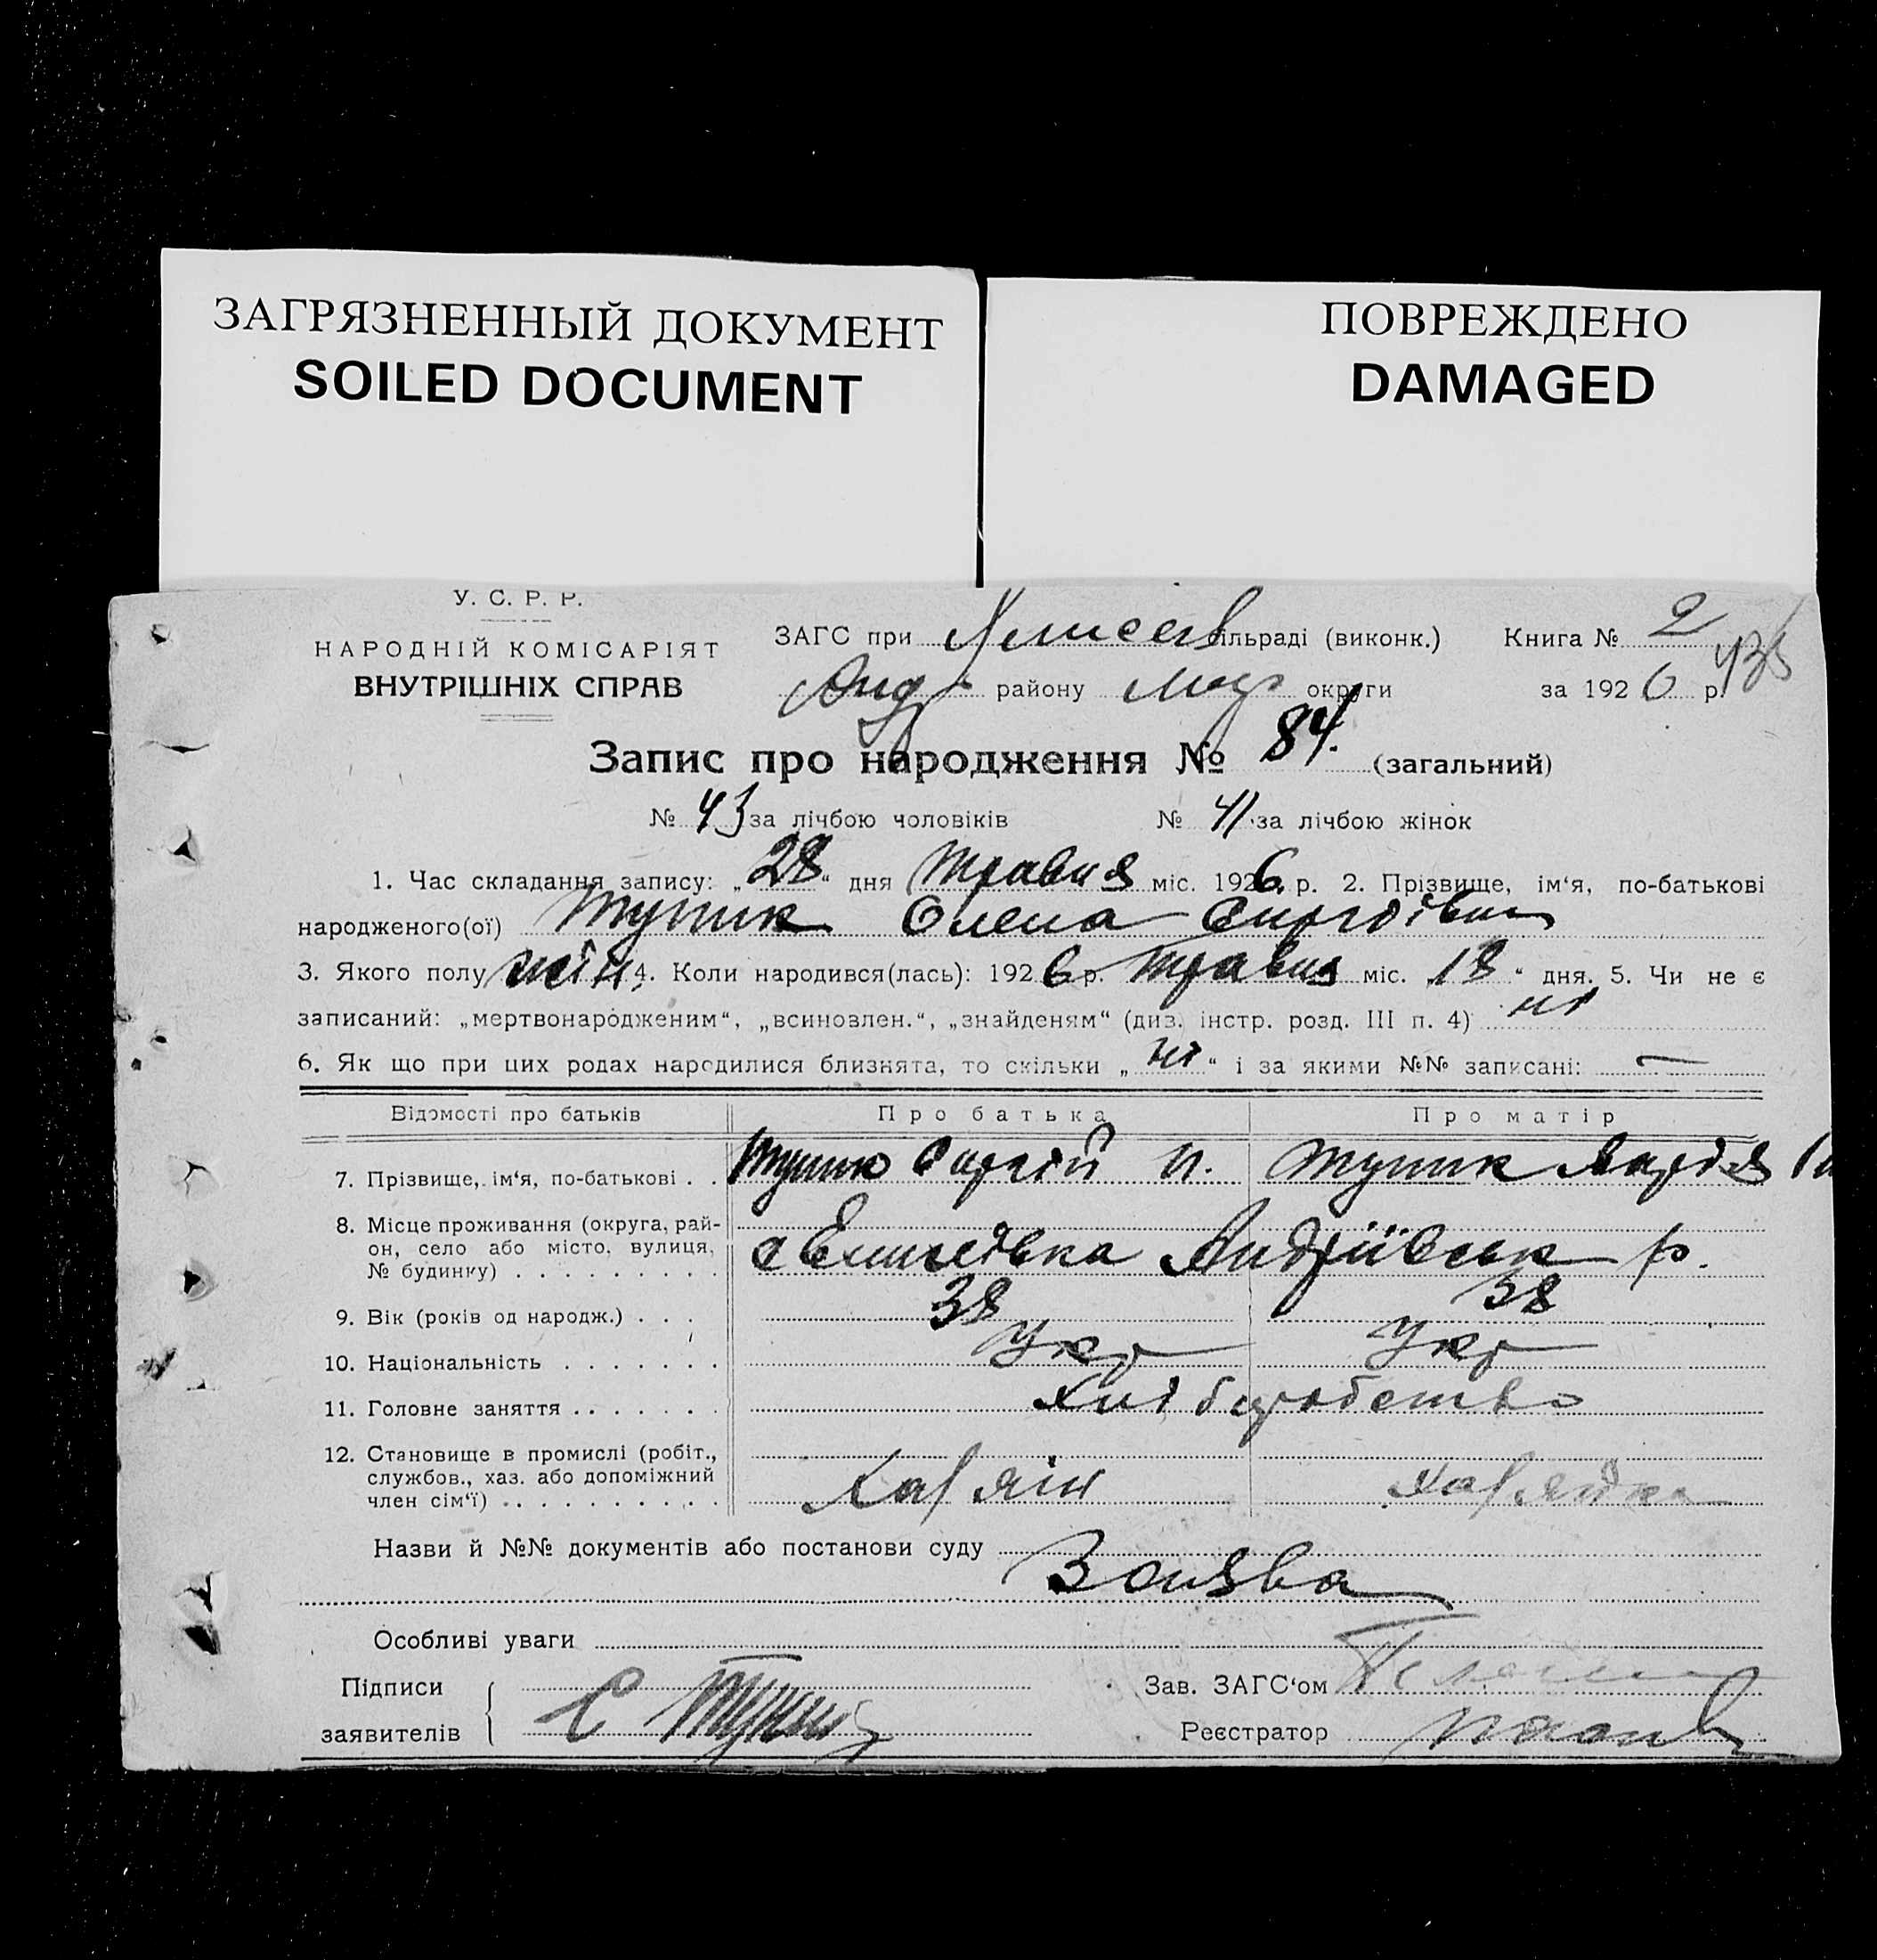 ЗАГРЯЗНЕННЫЙ ДОКУМЕНТ
SOILED DOCUMENT
ПОВРЕЖДЕНО
DAMAGED
У. С. Р. Р.
НАРОДНІЙ КОМІСАРІЯТ
ВНУТРІШНІХ СПРАВ
ЗАГС при сільраді (виконк.) Книга № 2
Андр району округи за 1926 р.
Запис про народження № 84. (загальний)
№ 43 за лічбою чоловіків № 41 за лічбою жінок
1. Час складання запису: „28“ дня травня міс. 1926 р. 2. Прізвище, ім‘я, по-батькові
народженого(ої) Тупик Олена Сергіївна
3. Якого полу жін. 4. Коли народився(лась): 1926 р. травня міс. „18“ дня. 5. Чи не є
записаний: „мертвонародженим“, „всиновлен.“, „знайденям“ (див. інстр. розд. III п. 4) ні
6. Як що при цих родах народилися близнята, то скільки „ні“ і за якими №№ записані: —
Відомості про батьків Про батька Про матір
7. Прізвище, ім‘я, по-батькові . . Тупик Сергій П. Тупик Марія
8. Місце проживання (округа, рай-
он, село або місто, вулиця, с Елисеївка Андріївськ р.
№ будинку) . . . . . . . . .
9. Вік (років од народж.) . . . 38 38
10. Національність . . . . . . . Укр Укр
11. Головне заняття . . . . . . . Хліборобство
12. Становище в промислі (робіт.,
службов., хаз. або допоміжний Хазяін Хазяйка
член сім‘ї) . . . . . . . . . .
Назви й №№ документів або постанови суду Заява
Особливі уваги
Підписи Зав. ЗАГС‘ом
заявителів С Тупик Реєстратор